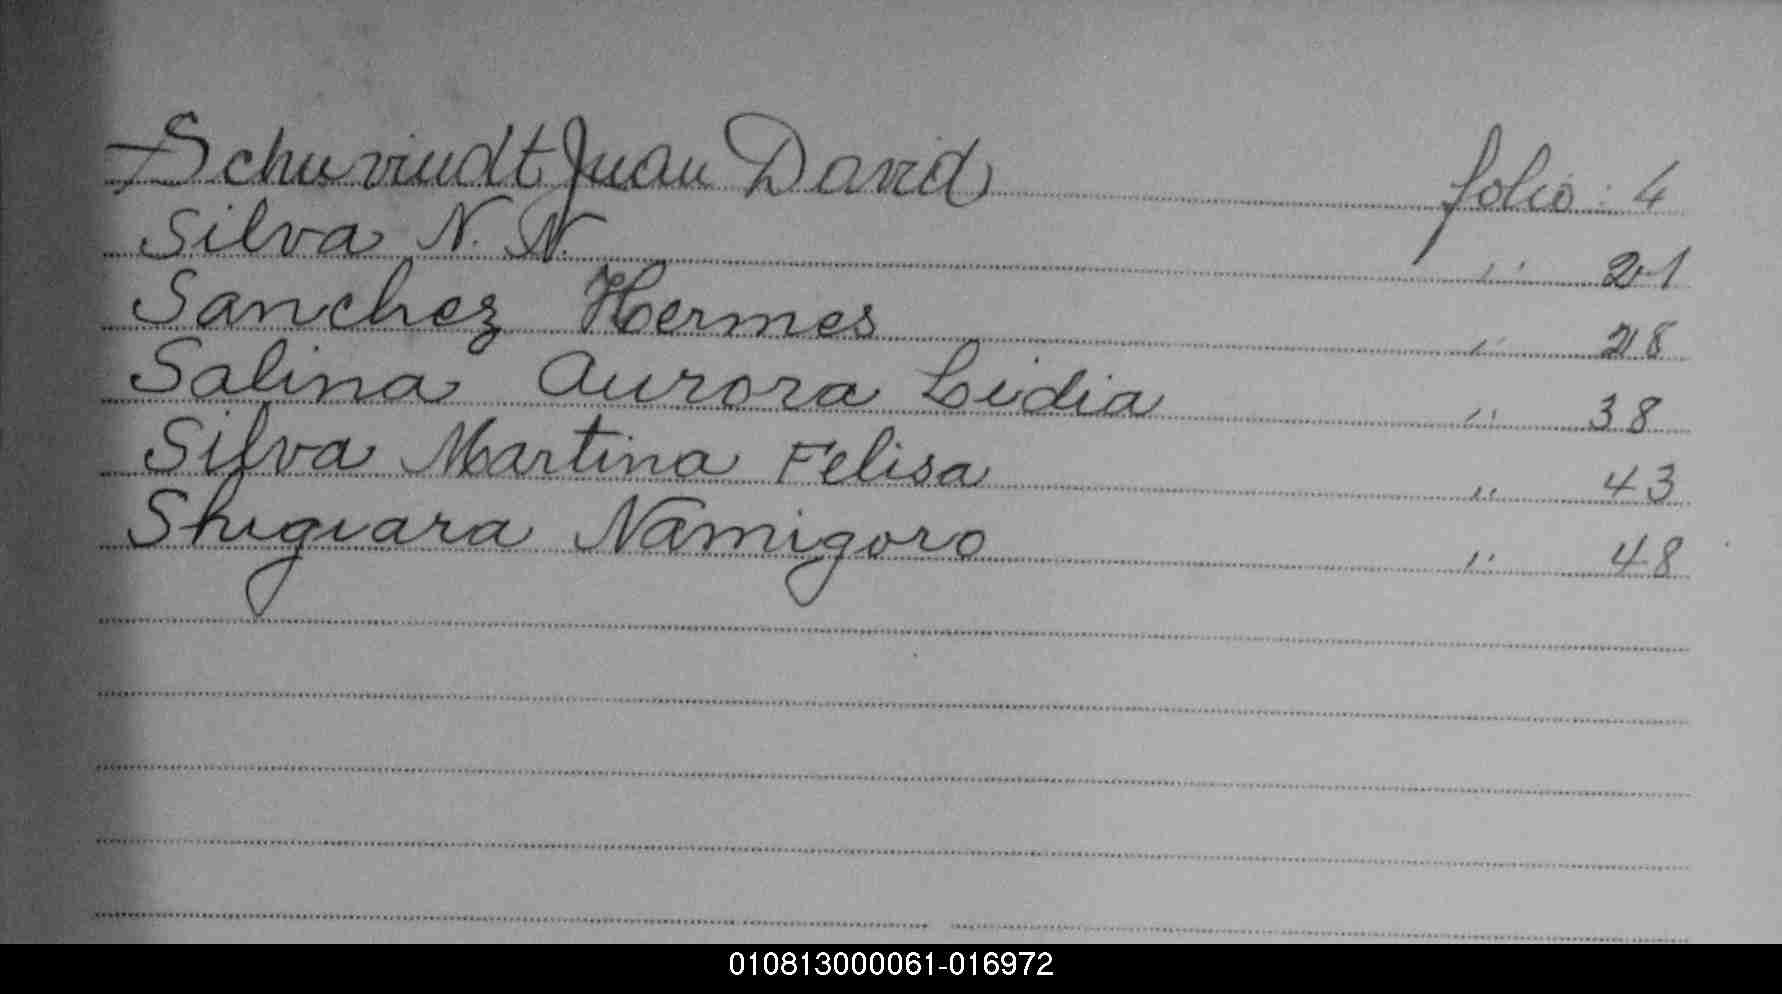 Schuvindt Juan David folio: 4
Silva N. N. " 21
Sanchez Hermes " 28
Salina Aurora Lidia " 38
Silva Martina Felisa " 43
Shigiara Namigoro " 48
010813000061-016972